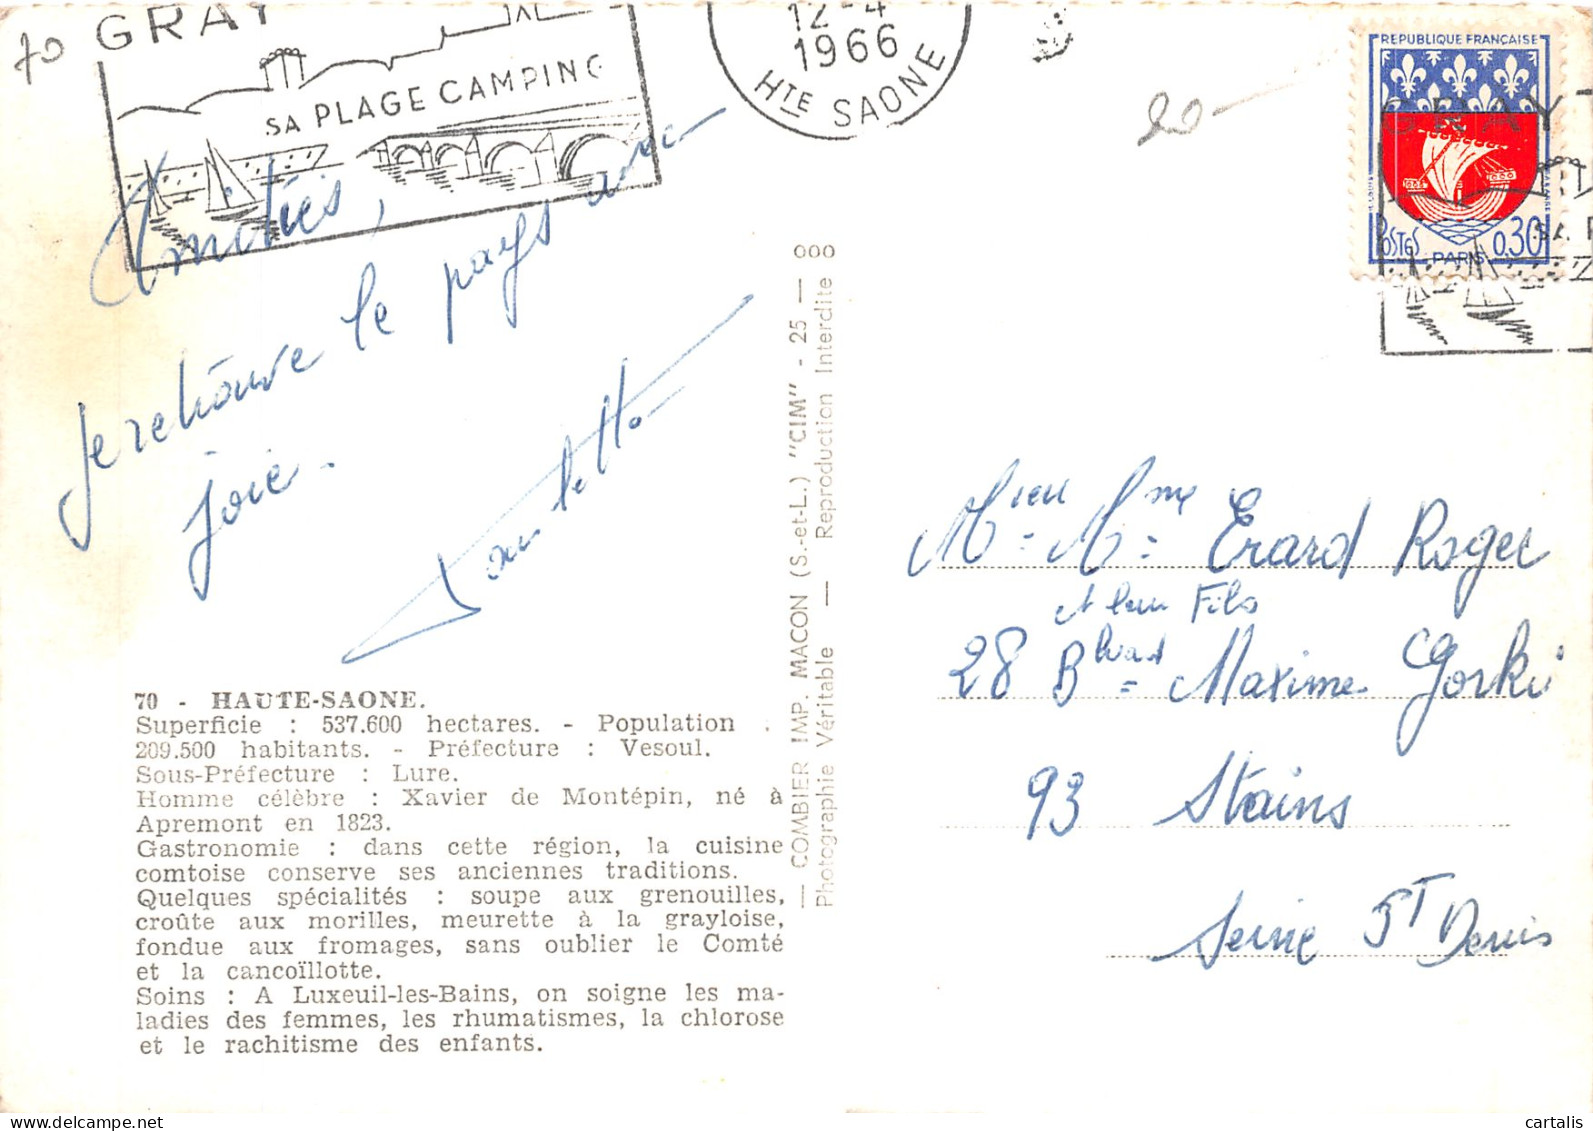 70
GRAY
SA PLAGE CAMPING
12-4
1966
HTE SAONE
20-
REPUBLIQUE FRANÇAISE
POSTES
0,30
PARIS
GRAY
SA P
Amitiés,
Je retrouve le pays avec
joie.
— COMBIER IMP. MACON (S.-et-L.) "CIM" - 25 —
Photographie Véritable — Reproduction Interdite
Mieu = Mme = Erard Roger
et leur Fils
28 Blvard = Maxime Gorki
93 Stains
Seine ST Denis
70 - HAUTE-SAONE.
Superficie : 537.600 hectares. - Population :
209.500 habitants. - Préfecture : Vesoul.
Sous-Préfecture : Lure.
Homme célèbre : Xavier de Montépin, né à
Apremont en 1823.
Gastronomie : dans cette région, la cuisine
comtoise conserve ses anciennes traditions.
Quelques spécialités : soupe aux grenouilles,
croûte aux morilles, meurette à la grayloise,
fondue aux fromages, sans oublier le Comté
et la cancoïllotte.
Soins : A Luxeuil-les-Bains, on soigne les ma-
ladies des femmes, les rhumatismes, la chlorose
et le rachitisme des enfants.
delcampe.net
cartalis